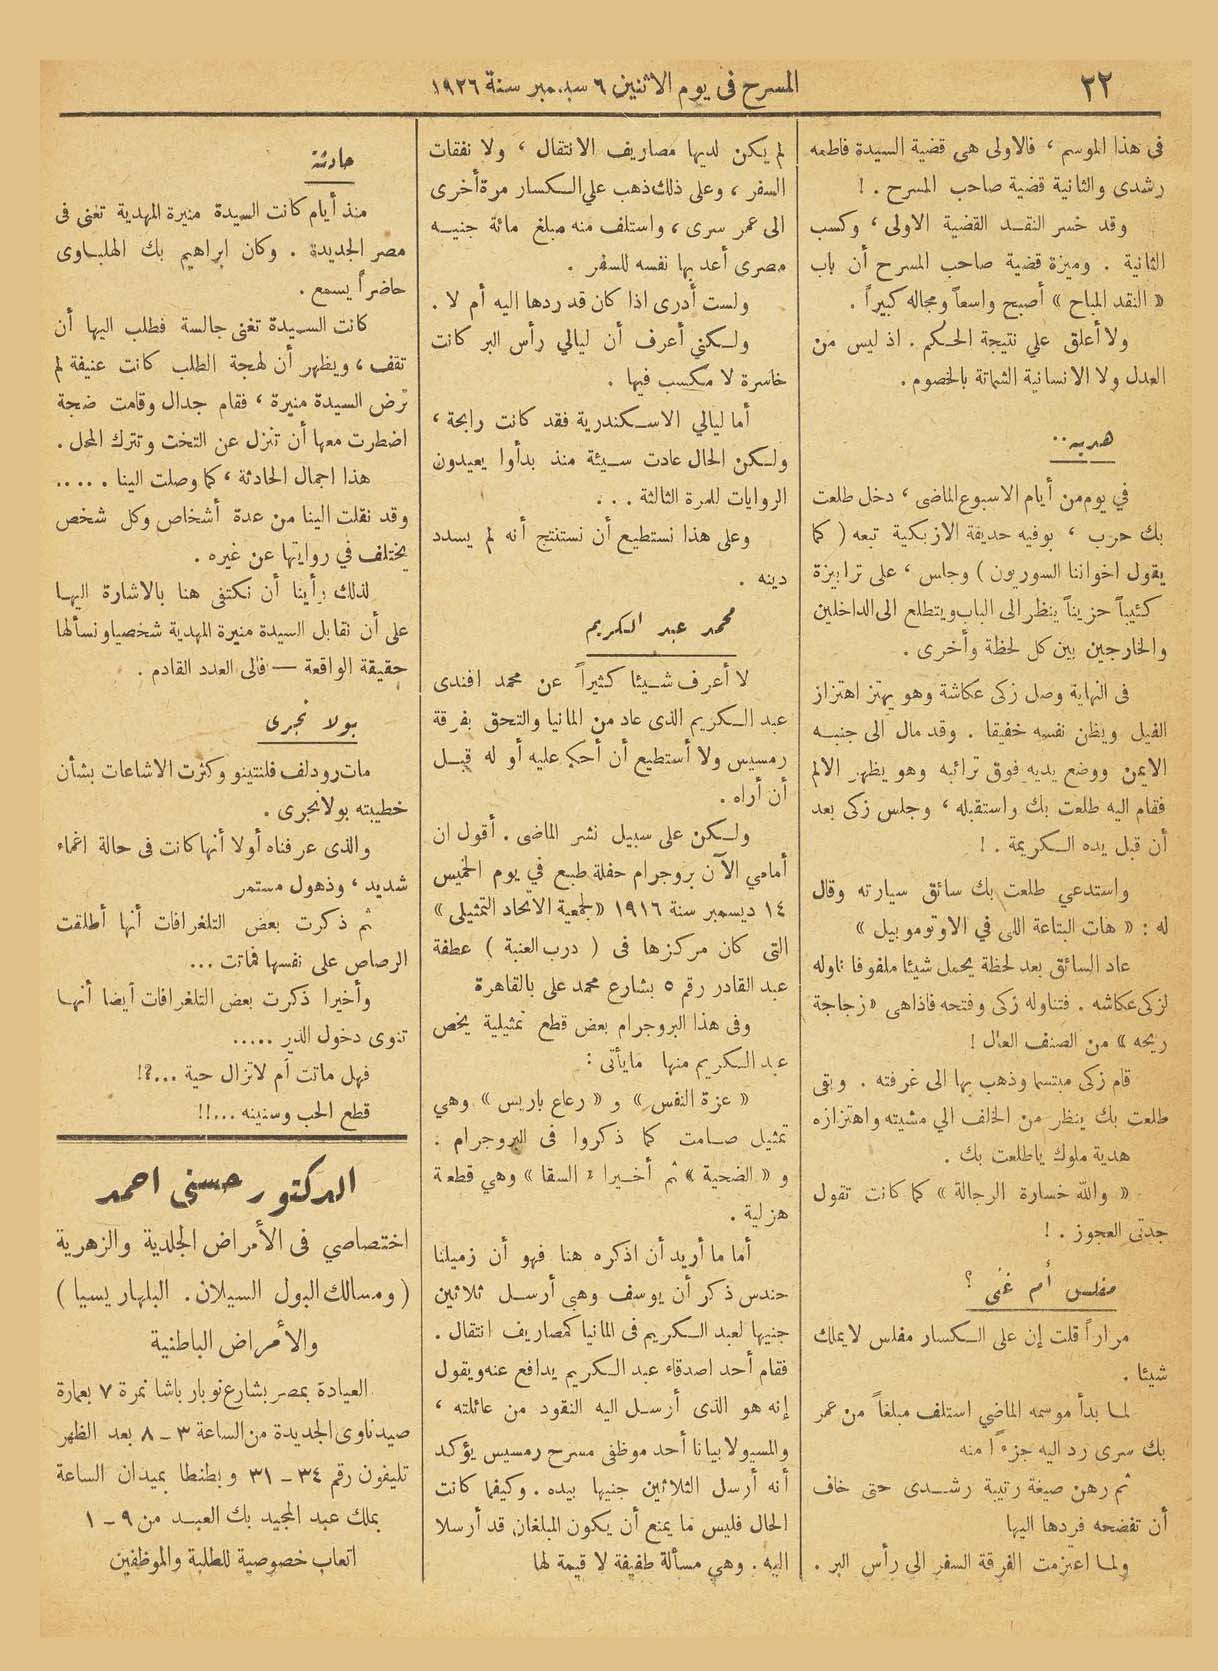 ٢٢
المسرح فى يوم الاثنين ٦ سبتمبر سنة ١٩٢٦
فى هذا الموسم ، فالاولى هى قضية السيدة فاطمه
رشدى والثانية قضية صاحب المسرح . !
وقد خسر النقد القضية الاولى ، وكسب
الثانية . وميزة قضية صاحب المسرح أن باب
« النقد المباح » أصبح واسعاً ومجاله كبيراً .
ولا أعلق علي نتيجة الحكم . اذ ليس من
العدل ولا الانسانية الشماتة بالخصوم .
هدية ..
في يوم من أيام الاسبوع الماضى ، دخل طلعت
بك حرب ، بوفيه حديقة الازبكية تبعه ( كما
يقول اخواننا السوريون ) وجلس ، على ترابيزة
كئيباً حزيناً ينظر الى الباب ويتطلع الى الداخلين
والخارجين بين كل لحظة وأخرى .
فى النهاية وصل زكى عكاشة وهو يهتز اهتزاز
الفيل ويظن نفسه خفيفا . وقد مال الى جنبه
الايمن ووضع يديه فوق ترائبه وهو يظهر الالم
فقام اليه طلعت بك واستقبله ، وجلس زكى بعد
أن قبل يده الكريمة . !
واستدعي طلعت بك سائق سيارته وقال
له : « هات البتاعة اللى في الاوتوموبيل »
عاد السائق بعد لحظة يحمل شيئا ملفوفا ناوله
لزكى عكاشه . فتناوله زكى وفتحه فاذاهى « زجاجة
ريحه » من الصنف العال !
قام زكى مبتسما وذهب بها الى غرفته . وبقى
طلعت بك ينظر من الخلف الي مشيته واهتزازه
هدية ملوك ياطلعت بك .
« والله خسارة الرجالة » كما كانت تقول
جدتى العجوز . !
مفلس أم غنى ؟
مراراً قلت إن على الكسار مفلس لايملك
شيئا .
لما بدأ موسمه الماضي استلف مبلغاً من عمر
بك سرى رد اليه جزءاً منه
ثم رهن صيغة رتيبة رشدى حتى خاف
أن تفضحه فردها اليها
ولما اعتزمت الفرقة السفر الي رأس البر .
لم يكن لديها مصاريف الانتقال ، ولا نفقات
السفر ، وعلى ذلك ذهب علي الكسار مرة أخرى
الى عمر سرى ، واستلف منه مبلغ مائة جنيه
مصرى أعد بها نفسه للسفر .
ولست أدرى اذا كان قد ردها اليه أم لا .
ولكني أعرف أن ليالي رأس البر كانت
خاسرة لا مكسب فيها .
أما ليالي الاسكندرية فقد كانت رابحة ،
ولكن الحال عادت سيئة منذ بدأوا يعيدون
الروايات للمرة الثالثة . . .
وعلى هذا نستطيع أن نستنتج أنه لم يسدد
دينه .
محمد عبد الكريم
لا أعرف شيئا كثيراً عن محمد افندى
عبد الكريم الذى عاد من المانيا والتحق بفرقة
رمسيس ولا أستطيع أن أحكم عليه أو له قبل
أن أراه .
ولكن على سبيل نشر الماضى . أقول ان
أمامي الآن بروجرام حفلة طبع في يوم الخميس
١٤ ديسمبر سنة ١٩١٦ « لجمعية الاتحاد التمثيلى »
التى كان مركزها فى ( درب العنبة ) عطفة
عبد القادر رقم ٥ بشارع محمد على بالقاهرة
وفى هذا البروجرام بعض قطع تمثيلية يخص
عبد الكريم منها مايأتى :
« عزة النفس » و « رعاع باريس » وهي
تمثيل صامت كما ذكروا فى البروجرام .
و « الضحية » ثم أخيرا « السقا » وهي قطعة
هزلية .
أما ما أريد أن اذكره هنا فهو أن زميلنا
حندس ذكر أن يوسف وهبي أرسل ثلاثين
جنيها لعبد الكريم فى المانيا كمصاريف انتقال .
فقام أحد اصدقاء عبد الكريم يدافع عنه ويقول
إنه هو الذى أرسل اليه النقود من عائلته ،
والمسيولا بيانا أحد موظفى مسرح رمسيس يؤكد
أنه أرسل الثلاثين جنيها بيده . وكيفما كانت
الحال فليس ما يمنع أن يكون المبلغان قد أرسلا
اليه . وهي مسألة طفيفة لا قيمة لها
حادثة
منذ أيام كانت السيدة منيرة المهدية تغنى فى
مصر الجديدة . وكان ابراهيم بك الهلباوى
حاضراً يسمع .
كانت السيدة تغنى جالسة فطلب اليها أن
تقف ، ويظهر أن لهجة الطلب كانت عنيفة لم
ترض السيدة منيرة ، فقام جدال وقامت ضجة
اضطرت معها أن تنزل عن التخت وتترك المحل .
هذا اجمال الحادثة ، كما وصلت الينا . . . . .
وقد نقلت الينا من عدة أشخاص وكل شخص
يختلف في روايتها عن غيره .
لذلك رأينا أن نكتفى هنا بالاشارة اليها
على أن نقابل السيدة منيرة المهدية شخصيا ونسألها
حقيقة الواقعة — فالى العدد القادم .
بولا نجرى
مات رودلف فلنتينو وكثرت الاشاعات بشأن
خطيبته بولا نجرى .
والذى عرفناه أولا أنها كانت فى حالة اغماء
شديد ، وذهول مستمر
ثم ذكرت بعض التلغرافات أنها أطلقت
الرصاص على نفسها فماتت ...
وأخيرا ذكرت بعض التلغرافات أيضا أنها
تنوى دخول الدير .....
فهل ماتت أم لاتزال حية ...؟!
قطع الحب وسنينه ...!!
الدكتور حسنى احمد
اختصاصي فى الأمراض الجلدية والزهرية
( ومسالك البول السيلان . البلهاريسيا )
والأمراض الباطنية
العيادة بمصر بشارع نوبار باشا نمرة ٧ بعمارة
صيدناوى الجديدة من الساعة ٣ – ٨ بعد الظهر
تليفون رقم ٣٤ – ٣١ وبطنطا بميدان الساعة
بملك عبد المجيد بك العبد من ٩ – ١
اتعاب خصوصية للطلبة والموظفين